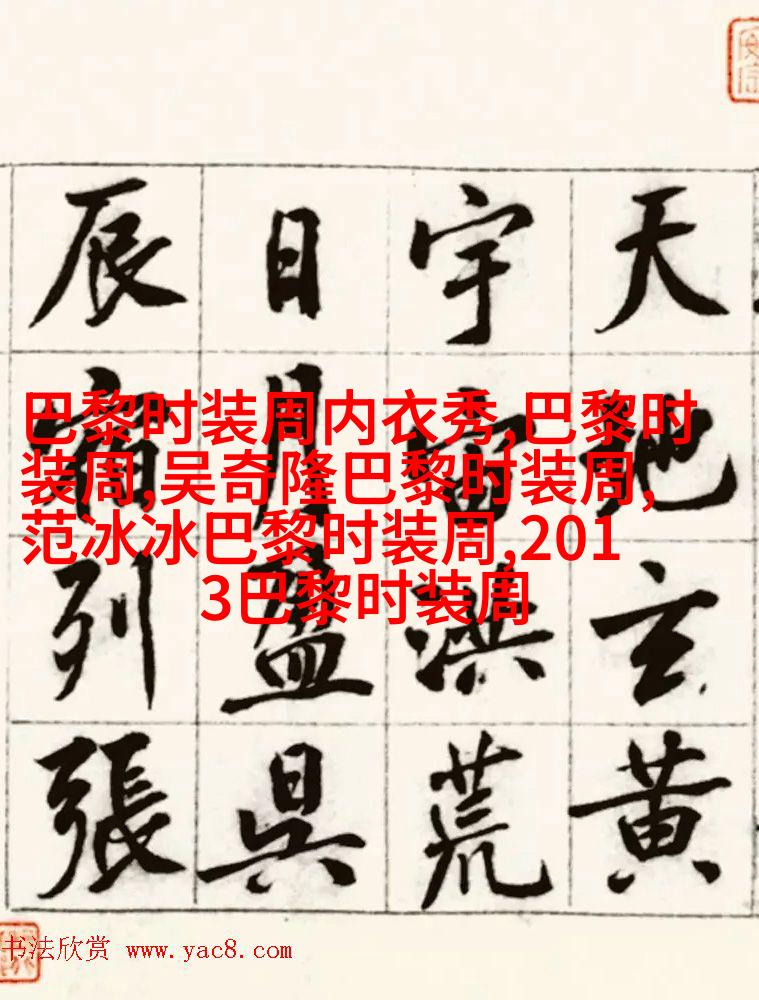 天地玄黄
宇宙洪荒
日月盈昗
辰宿列張
巴黎时装周内衣秀,巴黎时
装周,吴奇隆巴黎时装周,
范冰冰巴黎时装周,201
3巴黎时装周
书法欣赏 www.yac8.com